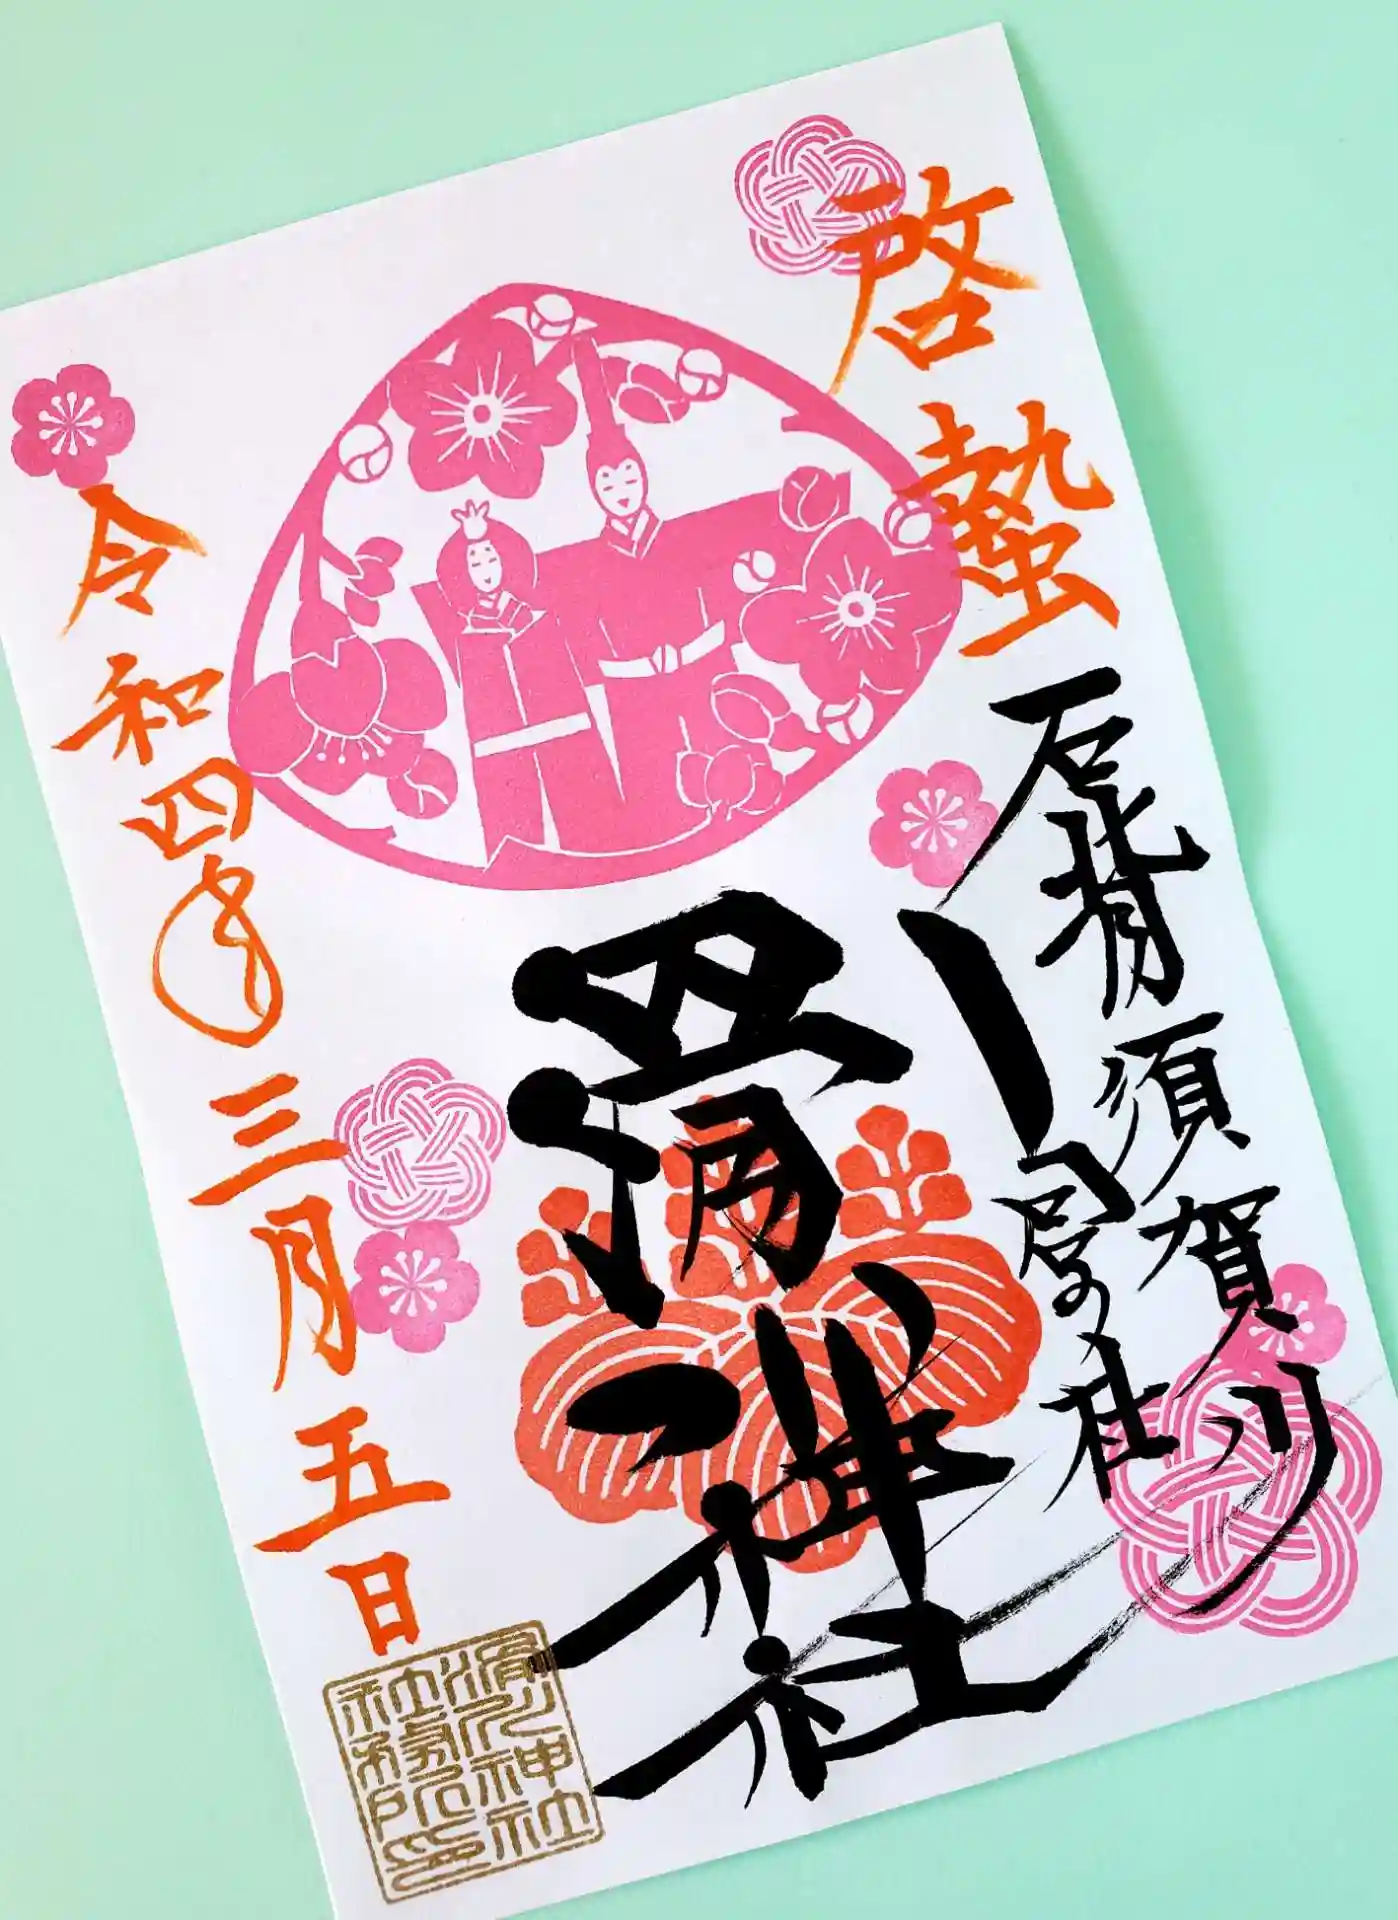 啓蟄
石背須賀川
滑川神社
令和四年三月五日
滑川神社
社務所印